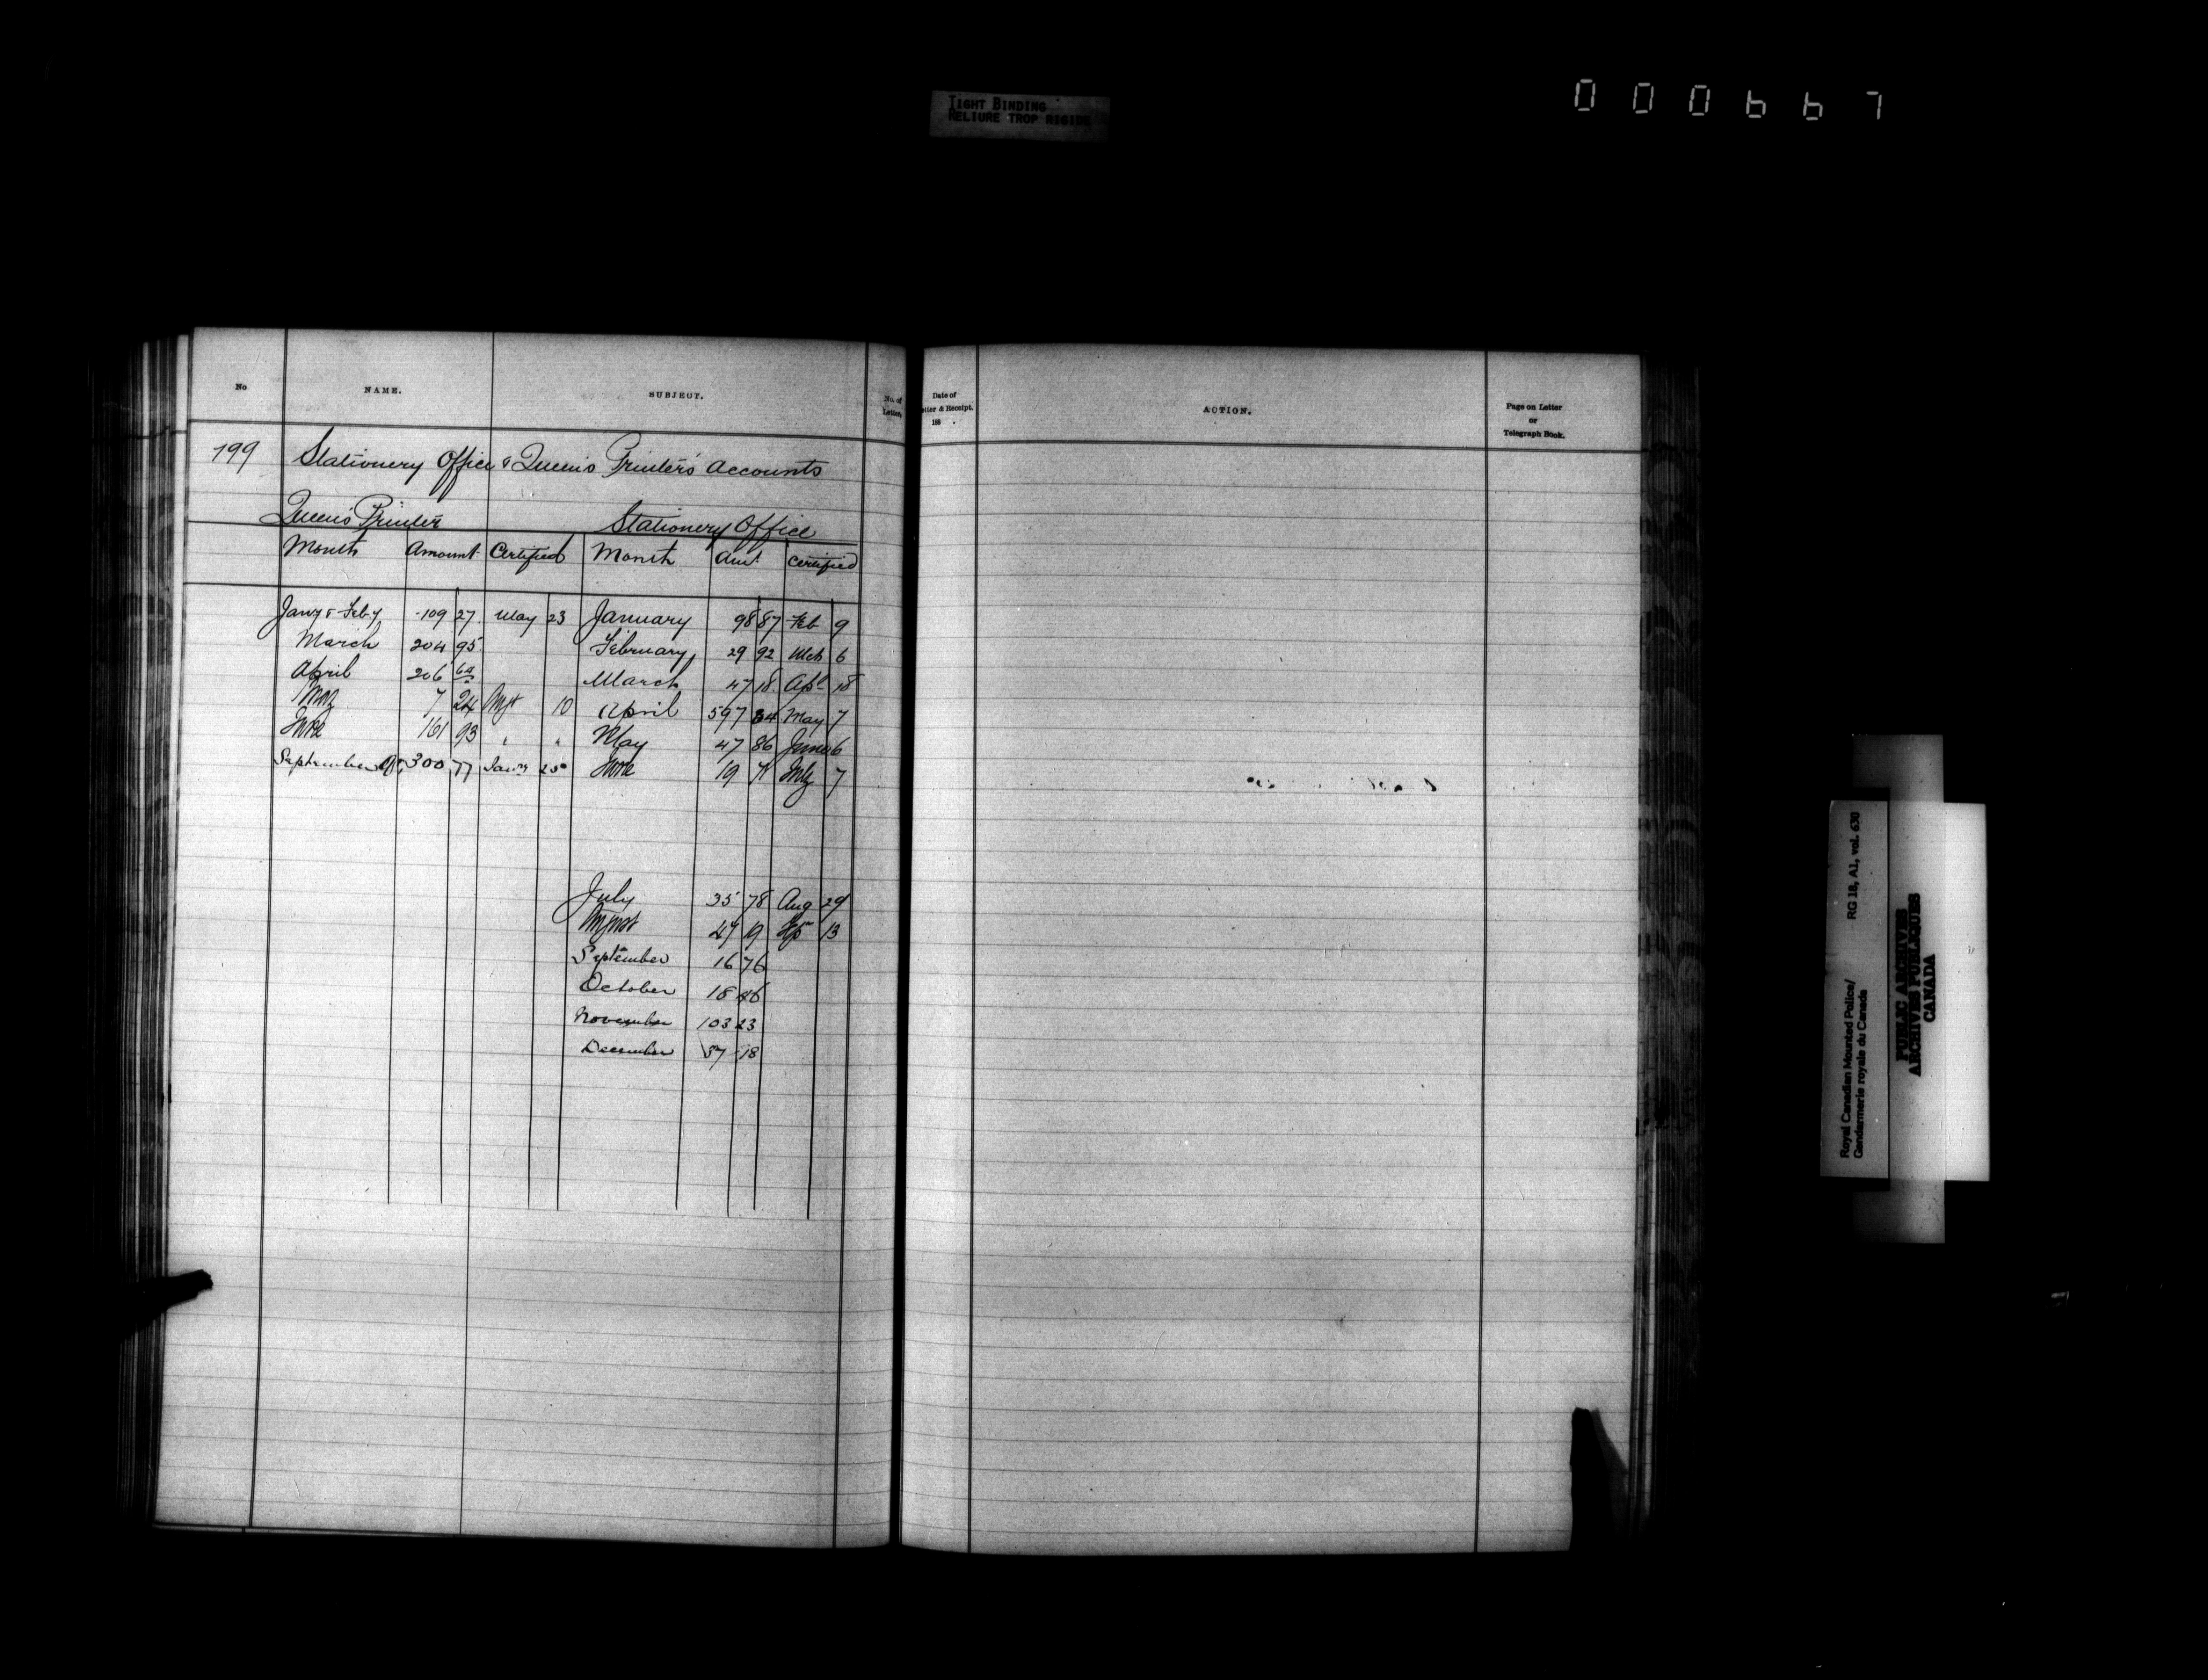 TIGHT BINDING
RELIURE TROP RIGIDE
000667
No NAME. SUBJECT. No. of Letter.
Date of Letter & Receipt. 188 . ACTION. Page on Letter or Telegraph Book.
199 Stationery Office & Queen's Printer's Accounts
Queen's Printer Stationery Office
Month Amount Certified Month Amt Certified
Jany & Feby 109 27 May 23 January 98 87 Feb 9
March 204 95 February 29 92 Mch 6
April 206 March 47 18 Apl 18
May 7 24 Augt 10 April 597 May 7
June 161 93 " " May 47 86 June 6
September Qr 300 77 Jany 25 June 19 71 July 7
July 35 78 Aug 29
August 47 19 Sep 13
September 16 76
October 18 46
November 103 23
December 57 18
Royal Canadian Mounted Police/ RG 18, A1, vol. 630
Gendarmerie royale du Canada
PUBLIC ARCHIVES
ARCHIVES PUBLIQUES
CANADA